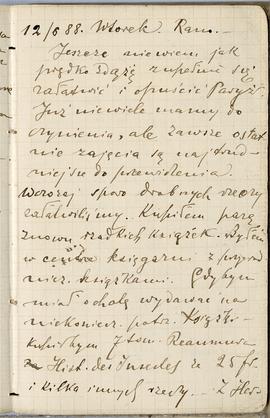 12/6 88. Wtorek. Rano. —
Jeszcze niewiem, jak
prędko zdążę zupełnie się
załatwić i opuścić Paryż.
Już niewiele mamy do
czynienia, ale zawsze ostat-
nie zajęcia są najtrud-
niejsze do przewidzenia.
Wczoraj sporo drobnych rzeczy
załatwiliśmy. Kupiłem parę
znowu rzadkich książek. Byłem
w księgarni z przyrod-
nicz. książkami. Gdybym
miał ochotę wydawać na
niekoniecz. potrz. książki
kupiłbym 7 tom. Reaumura
Hist. des Insectes za 25 fr.
i kilka innych rzeczy. — Z